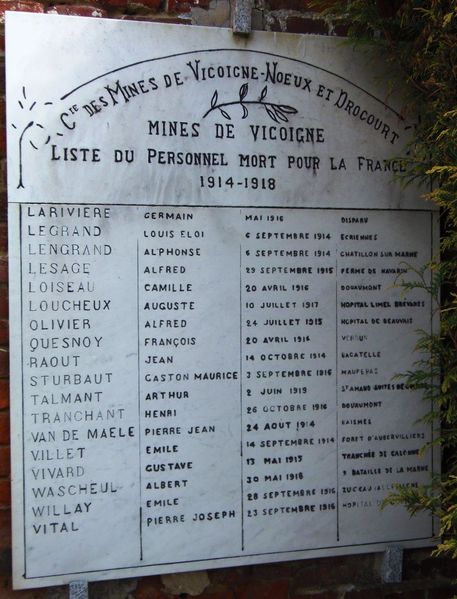 Cie DES MINES DE VICOIGNE-NOEUX ET DROCOURT
MINES DE VICOIGNE
LISTE DU PERSONNEL MORT POUR LA FRANCE
1914-1918
LARIVIERE GERMAIN MAI 1916 DISPARU
LEGRAND LOUIS ELOI 6 SEPTEMBRE 1914 ECRIENNES
LENGRAND ALPHONSE 6 SEPTEMBRE 1914 CHATILLON SUR MARNE
LESAGE ALFRED 29 SEPTEMBRE 1915 FERME DE NAVARIN
LOISEAU CAMILLE 20 AVRIL 1916 DOUAUMONT
LOUCHEUX AUGUSTE 10 JUILLET 1917 HOPITAL LIMEL BREVANES
OLIVIER ALFRED 24 JUILLET 1915 HOPITAL DE BEAUVAIS
QUESNOY FRANÇOIS 20 AVRIL 1916 VERDUN
RAOUT JEAN 14 OCTOBRE 1914 BAGATELLE
STURBAUT GASTON MAURICE 3 SEPTEMBRE 1916 MAUREPAS
TALMANT ARTHUR 2 JUIN 1919 ST AMAND
TRANCHANT HENRI 26 OCTOBRE 1916 DOUAUMONT
VAN DE MAELE PIERRE JEAN 24 AOUT 1914 RAISMES
VILLET EMILE 14 SEPTEMBRE 1914 FORET D'AUBERVILLIERS
VIVARD GUSTAVE 13 MAI 1915 TRANCHÉE DE CALONNE
WASCHEUL ALBERT 30 MAI 1918 2 BATAILLE DE LA MARNE
WILLAY EMILE 28 SEPTEMBRE 1916
VITAL PIERRE JOSEPH 23 SEPTEMBRE 1916 HOPITAL